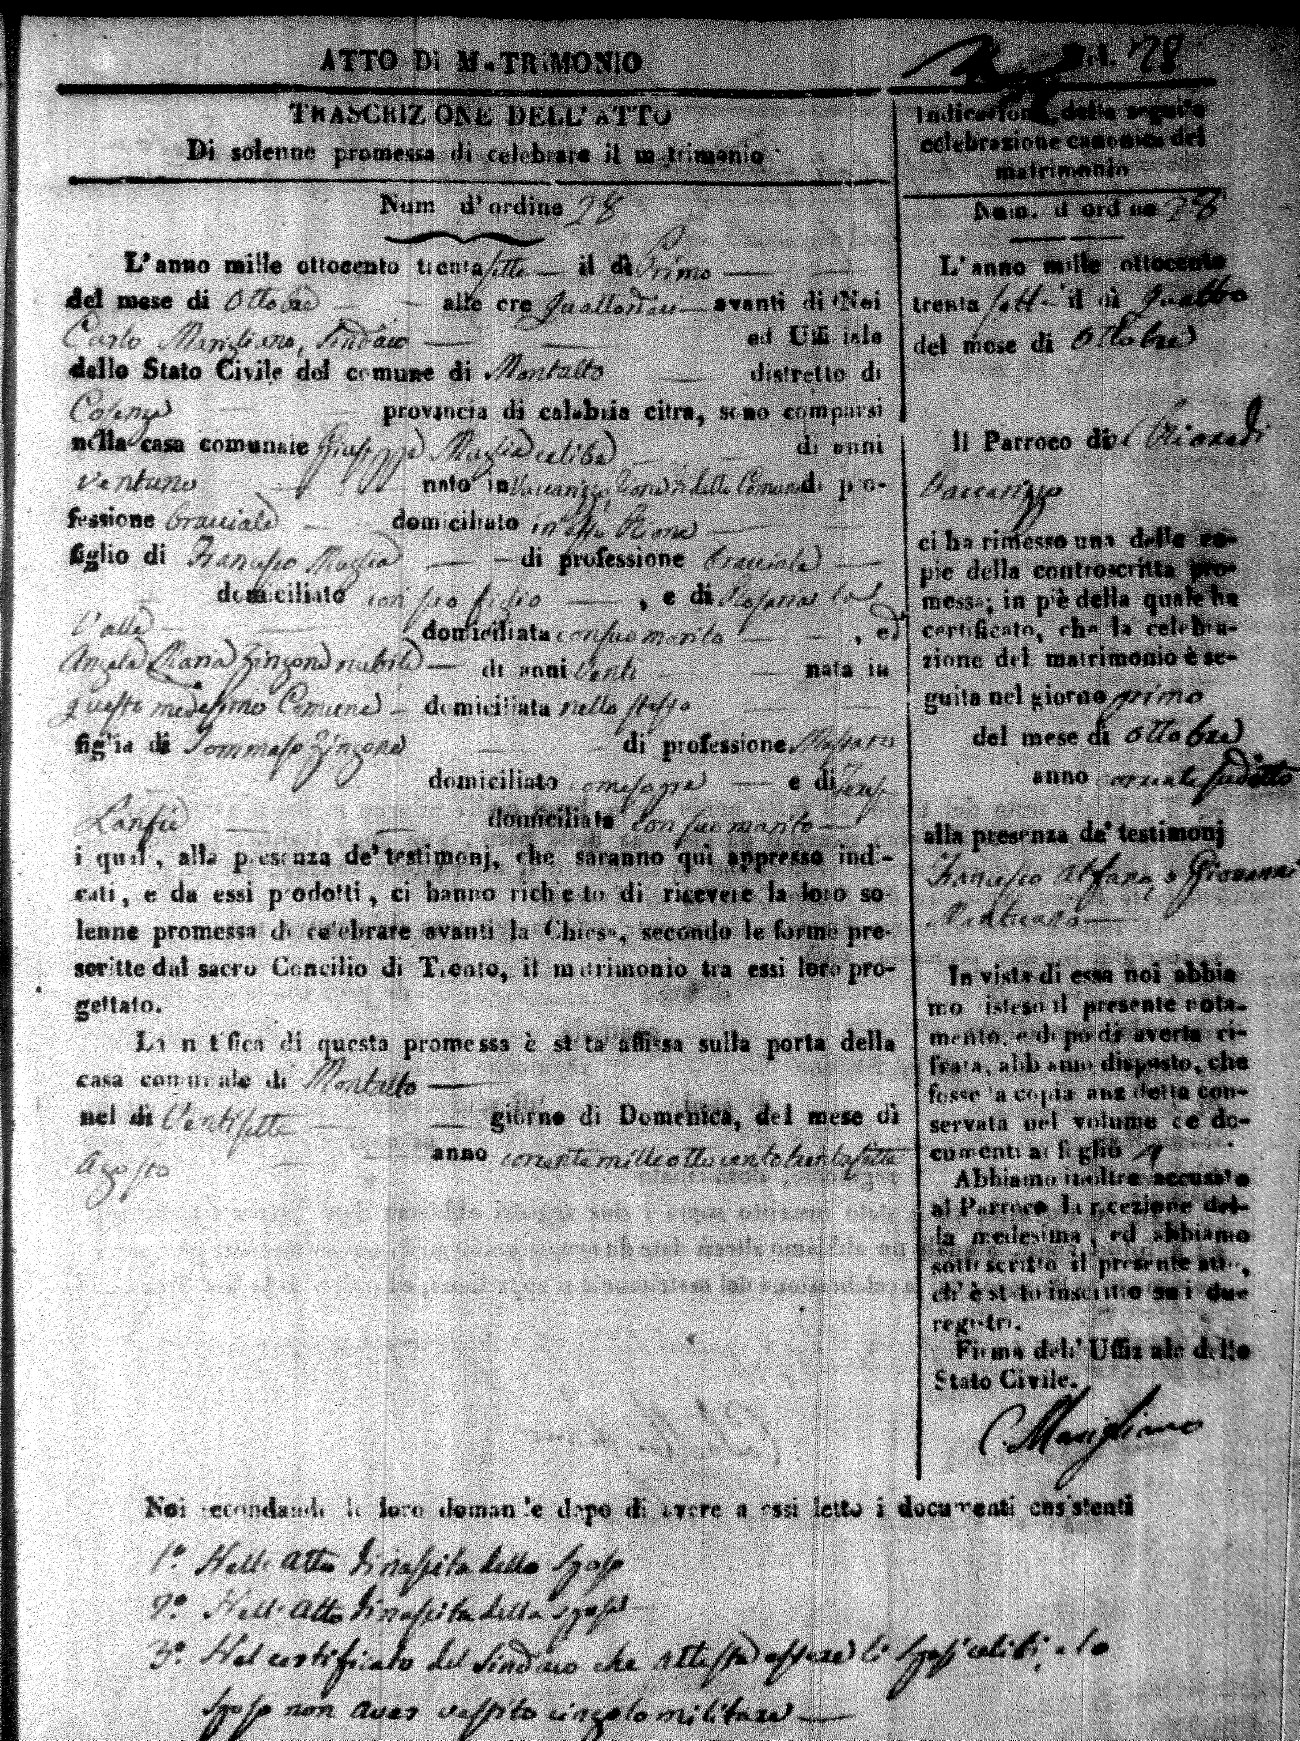 ATTO Di MaTRiMONIO
28
TRASCRIZIONE DELL'ATTO
Di solenne promessa di celebrare il matrimonio
Num d'ordine 28
L'anno mille ottocento trentasette il dì Primo
del mese di Ottobre alle ore quattordici avanti di Noi
Carlo Marigliano, Sindaco ed Uffiziale
dello Stato Civile del comune di Montalto distretto di
Cosenza provincia di calabria citra, sono comparsi
nella casa comunale Giuseppe Maglia celibe di anni
ventuno nato in Vaccarizzo di pro-
fessione bracciale domiciliato in
figlio di Francesco Maglia di professione bracciale
domiciliato con suo figlio, e di
domiciliata con suo marito, ed
Angela Maria Zinzone nubile di anni venti nata in
questo medesimo Comune domiciliata nello stesso
figlia di Tommaso Zinzone di professione
domiciliato come sopra e di
domiciliata con suo marito
i quali, alla presenza de' testimonj, che saranno qui appresso indi-
cati, e da essi prodotti, ci hanno richiesto di ricevere la loro so-
lenne promessa di celebrare avanti la Chiesa, secondo le forme pre-
scritte dal sacro Concilio di Trento, il matrimonio tra essi loro pro-
gettato.
La notifica di questa promessa è stata affissa sulla porta della
casa comunale di Montalto
nel dì Ventisette giorno di Domenica, del mese di
Agosto anno corrente mille ottocento trentasette
Indicazione della seguita
celebrazione canonica del
matrimonio
Num. d'ordine 28
L'anno mille ottocento
trenta sette il dì quattro
del mese di Ottobre
Il Parroco di
Vaccarizzo
ci ha rimesso una delle co-
pie della controscritta pro-
messa; in piè della quale ha
certificato, che la celebra-
zione del matrimonio è se-
guita nel giorno primo
del mese di ottobre
anno corrente suddetto
alla presenza de' testimonj
Francesco Alfano, e Giovanni
In vista di essa noi abbia-
mo isteso il presente nota-
mento, e dopo di averla ci-
frata, abbiamo disposto, che
fosse la copia anzidetta con-
servata nel volume de' do-
cumenti al foglio
Abbiamo inoltre accusato
al Parroco la recezione del-
la medesima, ed abbiamo
sottoscritto il presente atto,
ch' è stato inscritto su i due
registri.
Firma dell' Uffiziale dello
Stato Civile.
C. Marigliano
Noi secondando le loro domande dopo di avere a essi letto i documenti consistenti
1.º Nell' atto di nascita dello sposo
2.º Nell' atto di nascita della sposa
3.º Nel certificato del Sindaco che attesta essere li sposi celibi, e lo
sposo non aver vestito cingolo militare